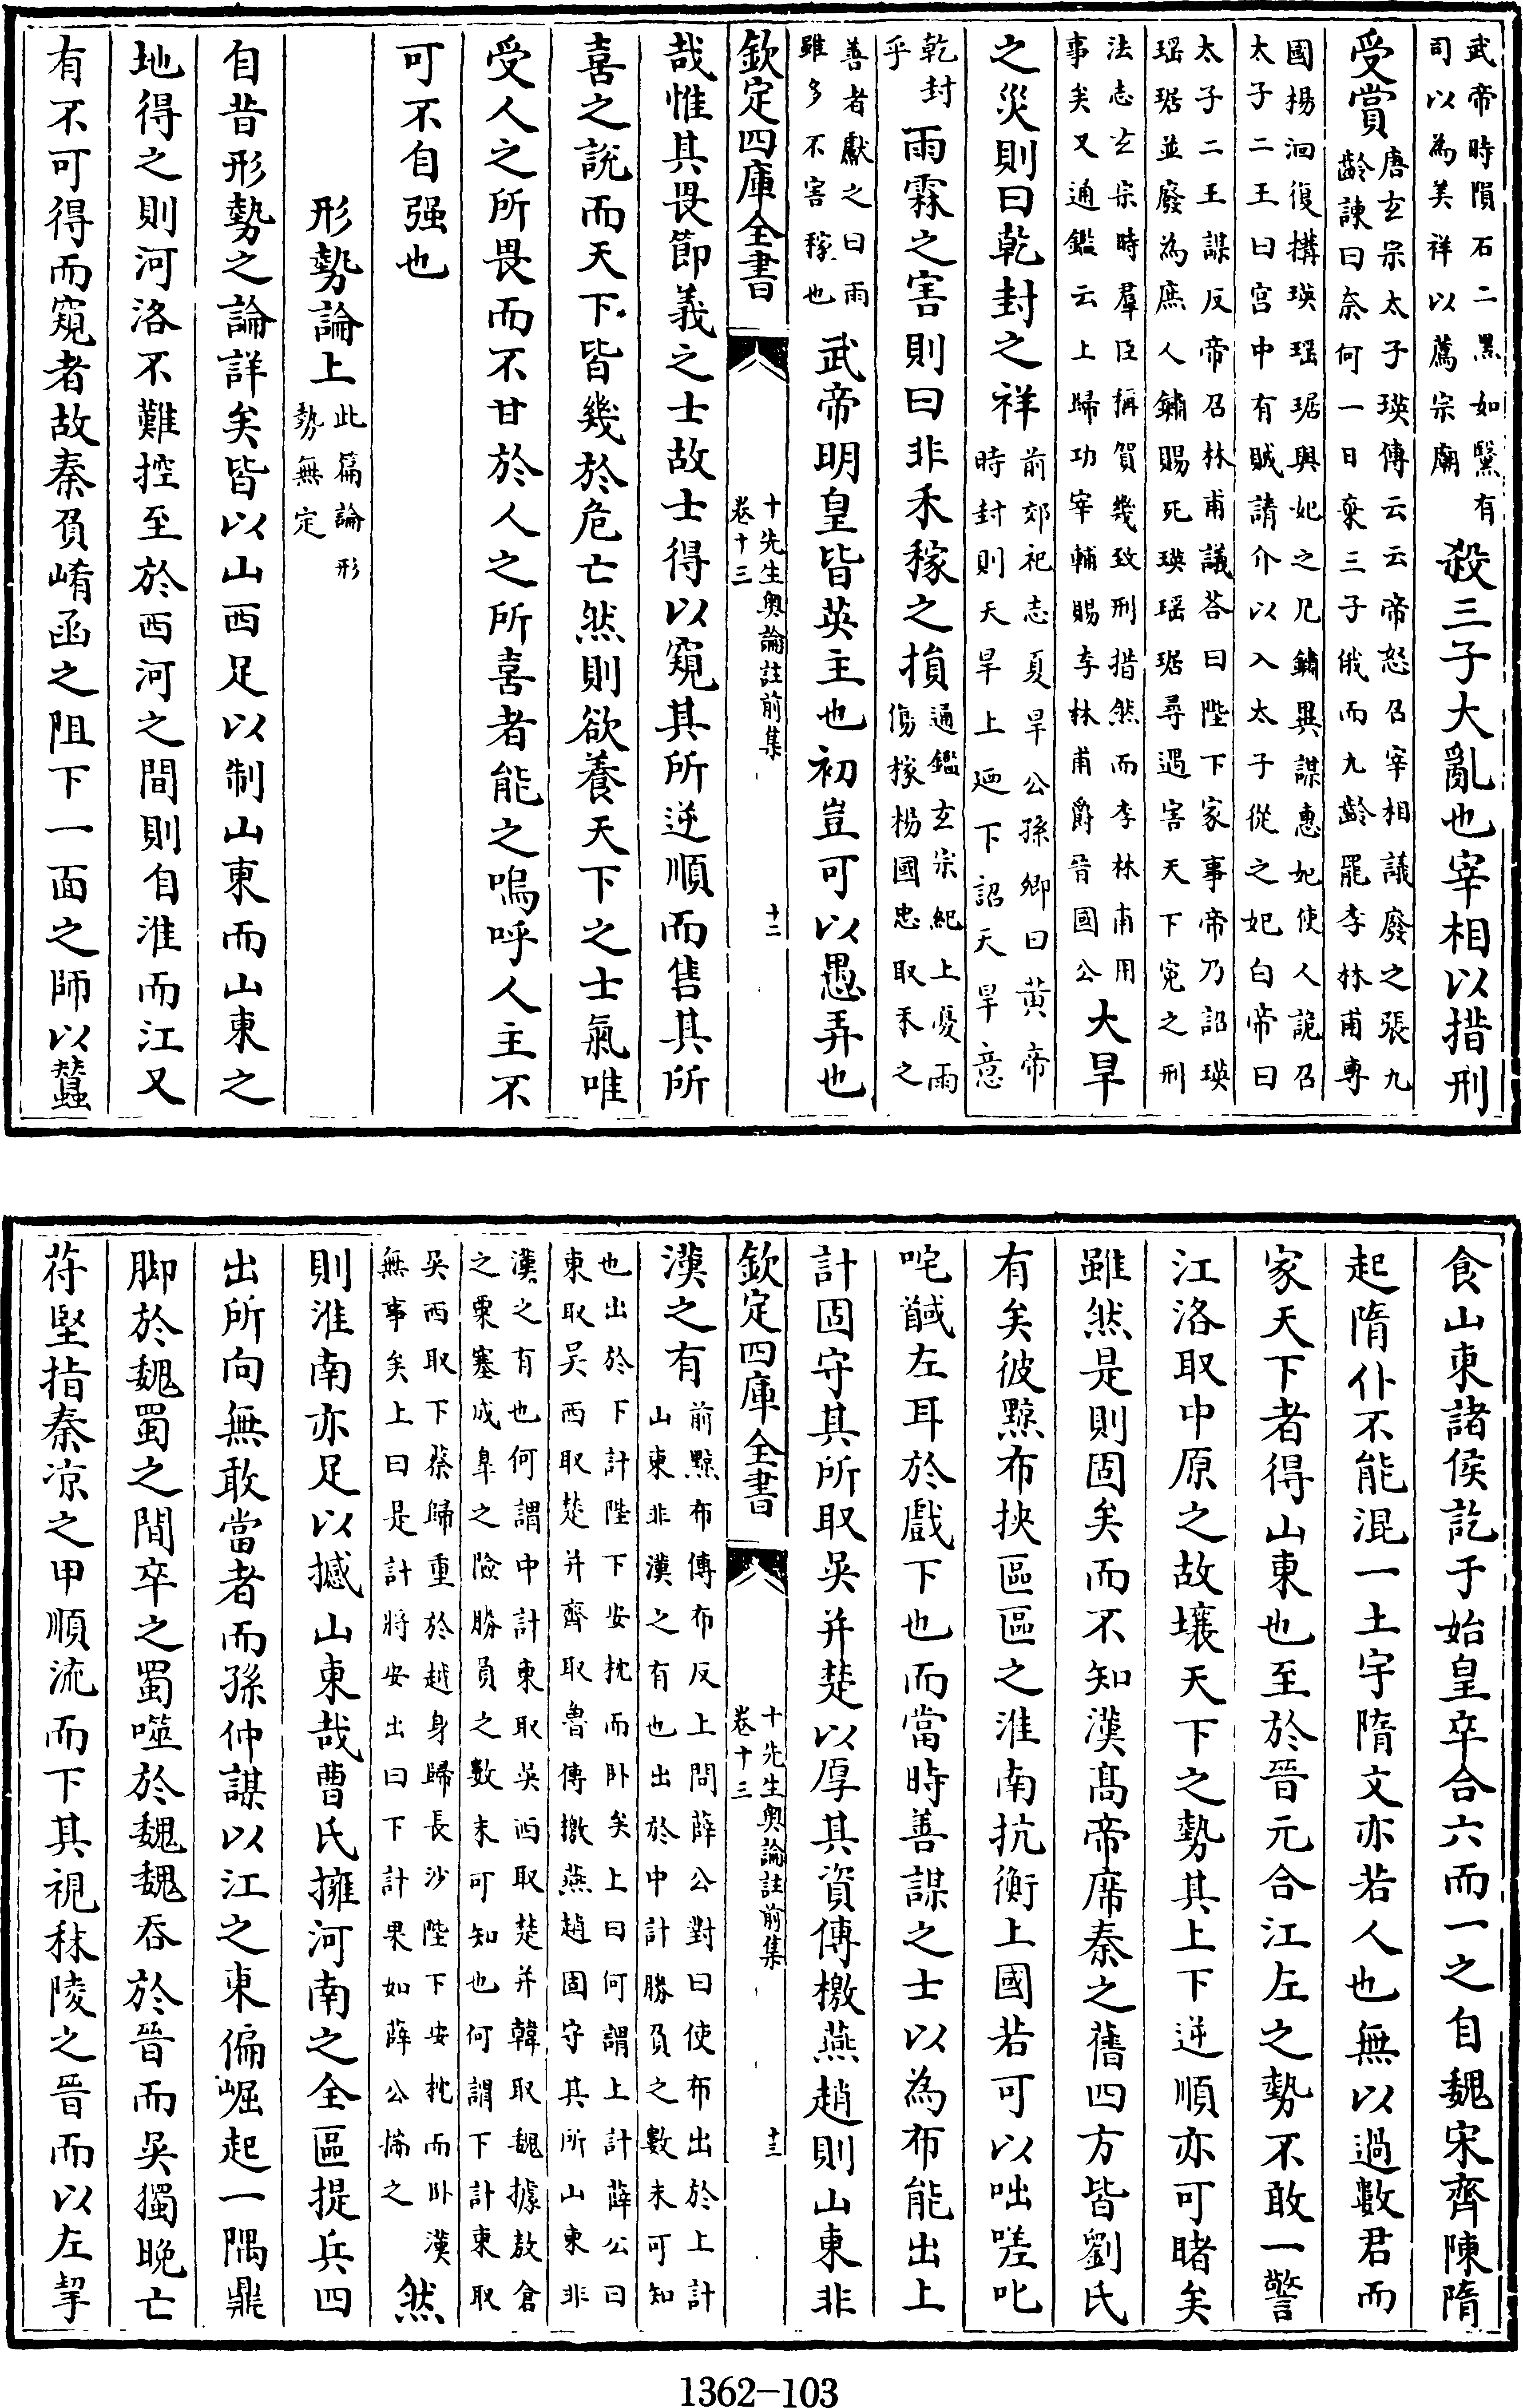 武帝時隕石二黑如黳有
司以為美祥以薦宗廟
殺三子大亂也宰相以措刑
受賞
唐玄宗太子瑛傳云云帝怒召宰相議廢之張九
齡諫曰奈何一日棄三子俄而九齡罷李林甫專
國楊洄復構瑛瑶琚與妃之兄鏽異謀惠妃使人詭召
太子二王曰宫中有賊請介以入太子從之妃白帝曰
太子二王謀反帝召林甫議荅曰陛下家事帝乃詔瑛
瑶琚並廢為庶人鏽賜死瑛瑶琚尋遇害天下寃之刑
法志玄宗時羣臣稱賀幾致刑措然而李林甫用
事矣又通鑑云上歸功宰輔賜李林甫爵晉國公
大旱
之災則曰乾封之祥
前郊祀志夏旱公孫卿曰黄帝
時封則天旱上廼下詔天旱意
乾封
乎
雨霖之害則曰非禾稼之損
通鑑玄宗紀上憂雨
傷稼楊國忠取禾之
善者獻之曰雨
雖多不害稼也
武帝明皇皆英主也初豈可以愚弄也
欽定四庫全書
十先生奥論註前集
卷十三
十二
哉惟其畏節義之士故士得以窺其所逆順而售其所
喜之說而天下皆幾於危亡然則欲養天下之士氣唯
受人之所畏而不甘於人之所喜者能之嗚呼人主不
可不自强也
形勢論上
此篇論形
勢無定
自昔形勢之論詳矣皆以山西足以制山東而山東之
地得之則河洛不難控至於西河之間則自淮而江又
有不可得而窺者故秦負崤函之阻下一面之師以蠶
食山東諸侯訖于始皇卒合六而一之自魏宋齊陳隋
起隋仆不能混一土宇隋文亦若人也無以過數君而
家天下者得山東也至於晉元合江左之勢不敢一警
江洛取中原之故壤天下之勢其上下逆順亦可睹矣
雖然是則固矣而不知漢髙帝席秦之舊四方皆劉氏
有矣彼黥布挾區區之淮南抗衡上國若可以咄嗟叱
咤馘左耳於戲下也而當時善謀之士以為布能出上
計固守其所取吴并楚以厚其資傳檄燕趙則山東非
欽定四庫全書
十先生奥論註前集
卷十三
十三
漢之有
前黥布傳布反上問薛公對曰使布出於上計
山東非漢之有也出於中計勝負之數未可知
也出於下計陛下安枕而卧矣上曰何謂上計薛公曰
東取吴西取楚并齊取魯傳檄燕趙固守其所山東非
漢之有也何謂中計東取吴西取楚并韓取魏據敖倉
之粟塞成臯之險勝負之數未可知也何謂下計東取
吴西取下蔡歸重於越身歸長沙陛下安枕而卧漢
無事矣上曰是計將安出曰下計果如薛公揣之
然
則淮南亦足以撼山東哉曹氏擁河南之全區提兵四
出所向無敢當者而孫仲謀以江之東偏崛起一隅鼎
脚於魏蜀之間卒之蜀噬於魏魏吞於晉而吴獨晚亡
苻堅指秦凉之甲順流而下其視秣陵之晉而以左挈
1362-103